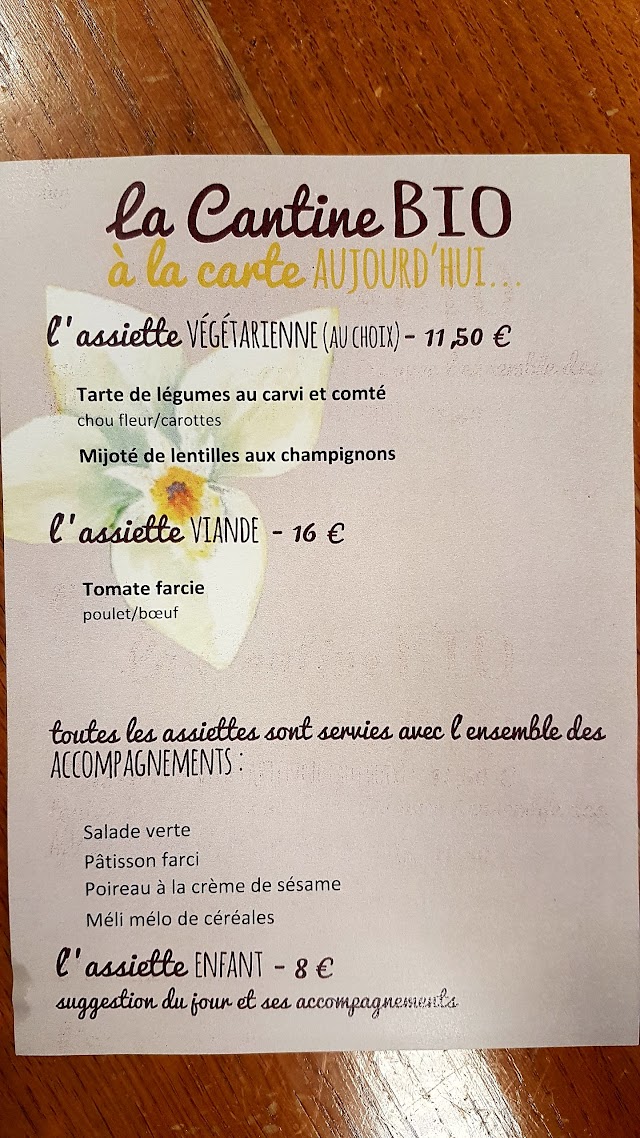 la Cantine BIO
à la carte AUJOURD'HUI...
l'assiette VÉGÉTARIENNE (AU CHOIX) - 11,50 €
Tarte de légumes au carvi et comté
chou fleur/carottes
Mijoté de lentilles aux champignons
l'assiette VIANDE - 16 €
Tomate farcie
poulet/bœuf
toutes les assiettes sont servies avec l'ensemble des
ACCOMPAGNEMENTS :
Salade verte
Pâtisson farci
Poireau à la crème de sésame
Méli mélo de céréales
l'assiette ENFANT - 8 €
suggestion du jour et ses accompagnements